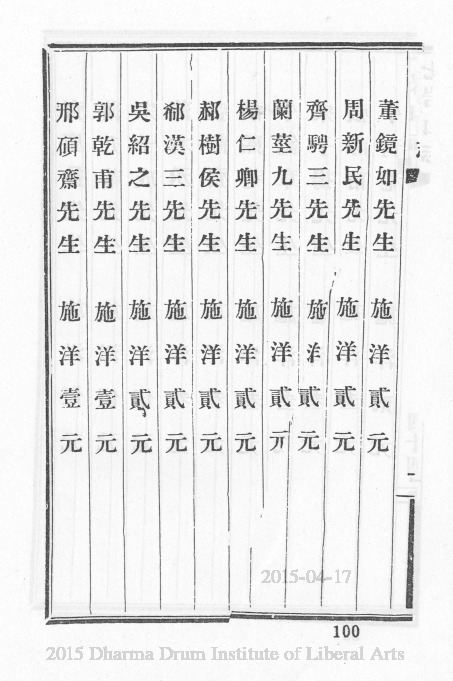 董鏡如先生 施洋貳元
周新民先生 施洋貳元
齊騁三先生 施洋貳元
蘭莖九先生 施洋貳元
楊仁卿先生 施洋貳元
郝樹侯先生 施洋貳元
郗漢三先生 施洋貳元
吳紹之先生 施洋貳元
郭乾甫先生 施洋壹元
邢碩齋先生 施洋壹元
100
2015-04-17
2015 Dharma Drum Institute of Liberal Arts